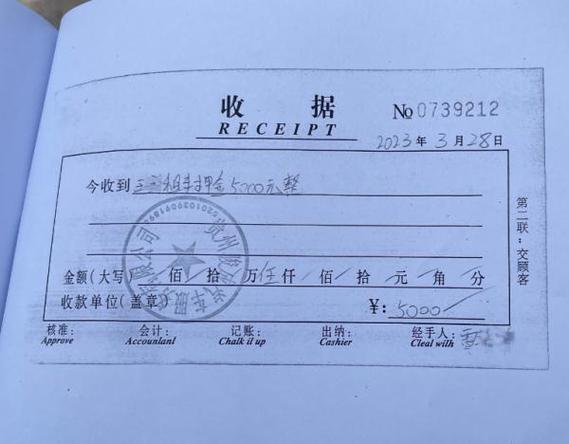 收据
RECEIPT
No 0739212
2023年3月28日
今收到 租车押金5000元整
金额(大写) 佰 拾 万 伍仟 佰 拾 元 角 分
收款单位(盖章) ¥: 5000
核准: 会计: 记账: 出纳: 经手人:
Approve Accountanl Chalk il up Cashier Cleal wilh
第二联:交顾客